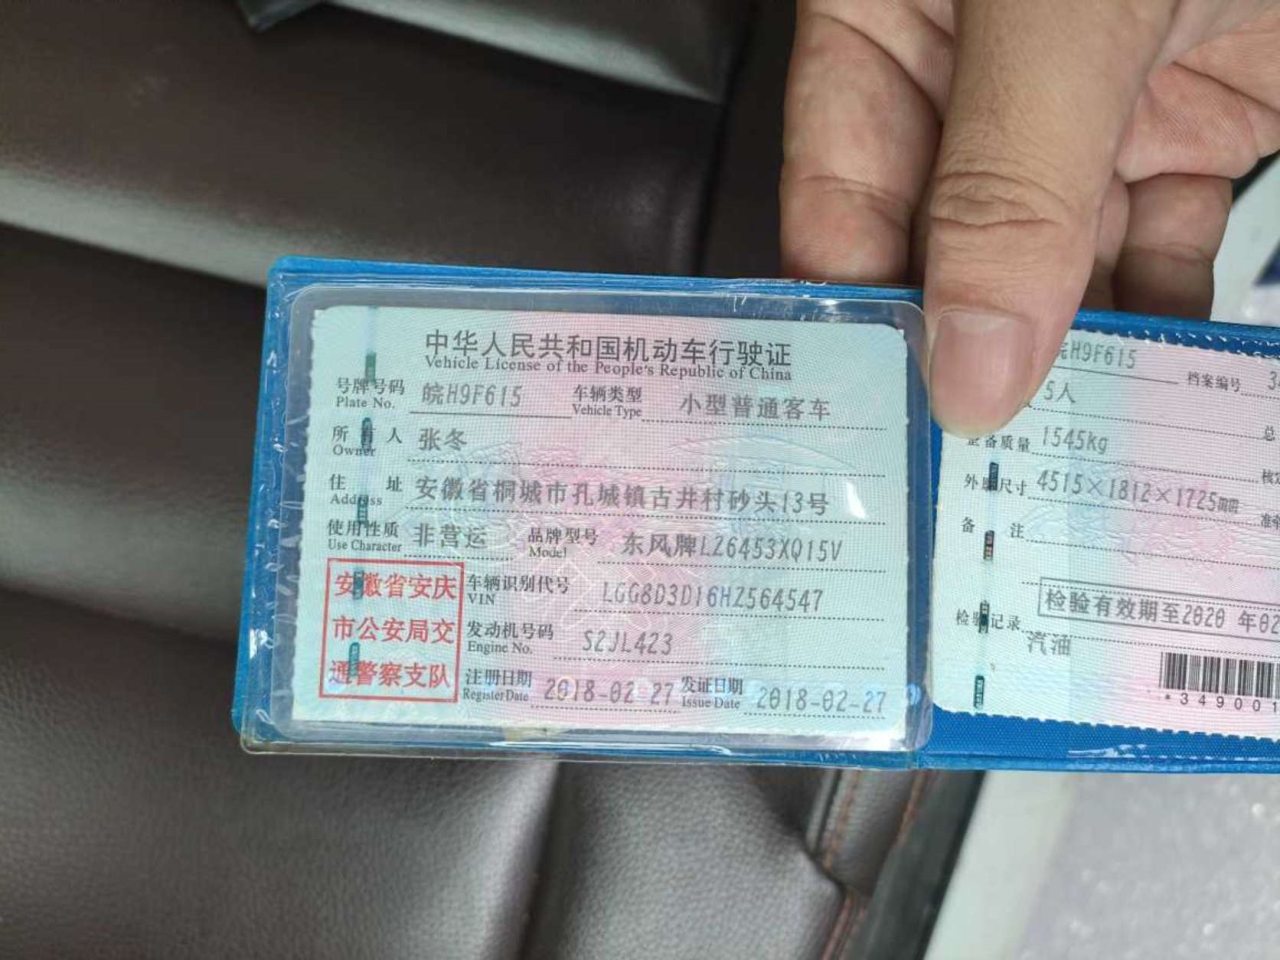 中华人民共和国机动车行驶证
Vehicle License of the People's Republic of China
号牌号码 皖H9F615 车辆类型 小型普通客车
Plate No. Vehicle Type
所有人 张冬
Owner
住址 安徽省桐城市孔城镇古井村砂头13号
Address
使用性质 非营运 品牌型号 东风牌LZ6453XQ15V
Use Character Model
安徽省安庆
市公安局交
通警察支队
车辆识别代号 LGG8D3D16HZ564547
VIN
发动机号码 S2JL423
Engine No.
注册日期 2018-02-27 发证日期 2018-02-27
Register Date Issue Date
皖H9F615 档案编号 3
5人
总
整备质量 1545kg
核
外廓尺寸 4515×1812×1725mm 准
备注
检验有效期至2020 年02
检验记录
汽油
*349001